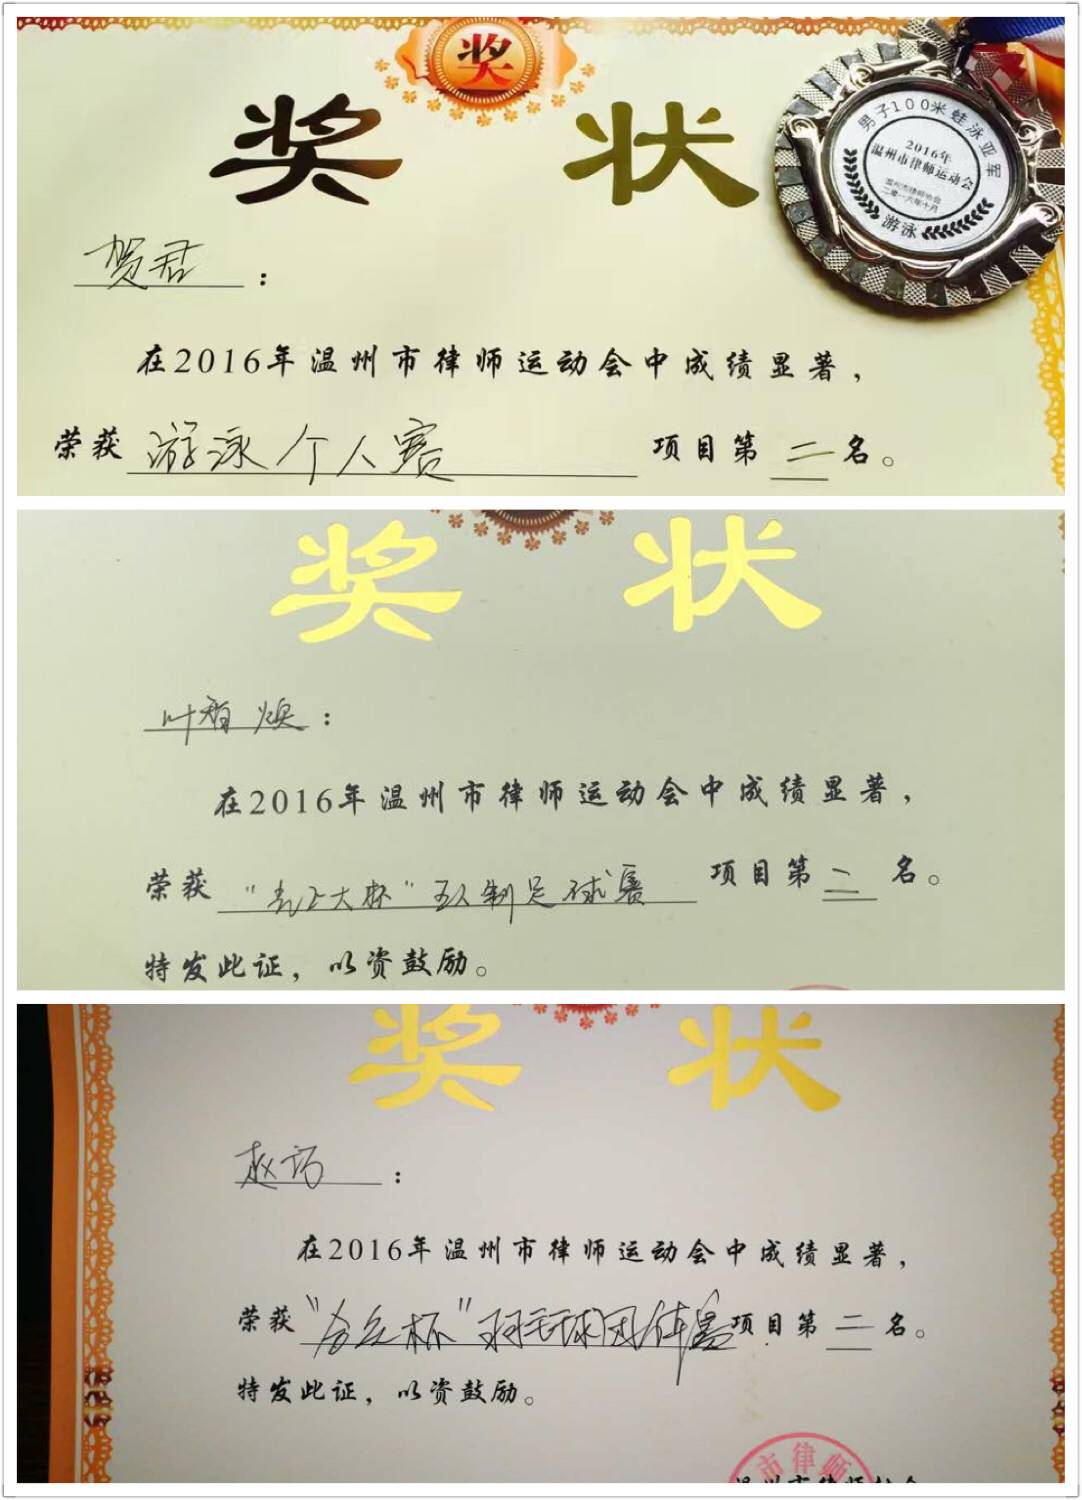 奖
奖 状
男子100米蛙泳亚军
2016年
温州市律师运动会
温州市律师协会
二零一六年十月
游泳
贺君：
在2016年温州市律师运动会中成绩显著，
荣获 游泳个人赛 项目第 二 名。
奖 状
叶 焕：
在2016年温州市律师运动会中成绩显著，
荣获 大杯"五人制足球赛 项目第 二 名。
特发此证，以资鼓励。
奖 状
赵：
在2016年温州市律师运动会中成绩显著，
荣获 杯"羽毛球团体赛 项目第 二 名。
特发此证，以资鼓励。
市律师
温州市律师协会